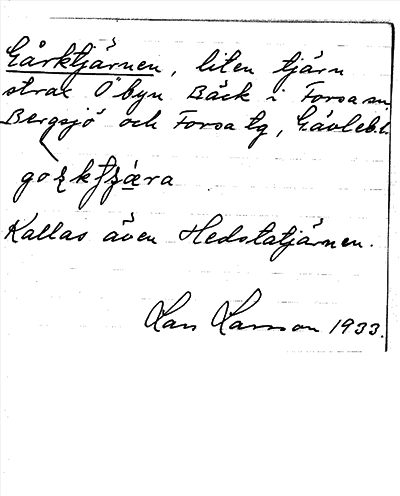 Gårktjärnen, liten tjärn
strax Ö byn Bäck i Forsa sn,
Bergsjö och Forsa tg, Gävleb.l.
Kallas även Hedstatjärnen.
Lars Larsson 1933.